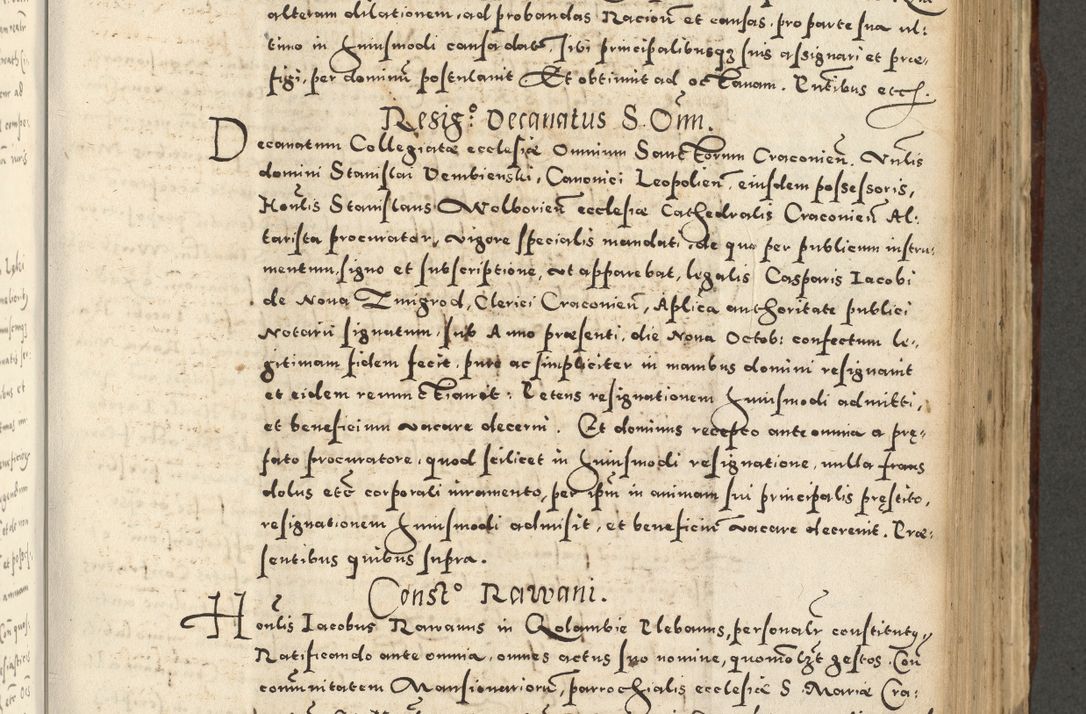 alteram dilationem, ad probandas Racioñ et causas, pro parte sua ul:
timo in huiusmodi causa datꝫ, sibi principalibusqꝫ suis assignari et præ-
figi, per dominũ postulauit Et obtinuit ad octauam. Pñtibus etc.
Resig.º Decanatus S. Oĩn.
Decanatum Collegiatæ ecclesiæ Omnium Sanctorum Craconień. Vñlis
domini Stanislai Dembienski, Canonici Leopolień, eiusdem possessoris,
Hoñlis Stanislaus Wolborień ecclesiæ Cathedralis Craconień Al-
tarista procurator, vigore specialis mandati, de quo per publicum instru-
mentum, signo et subscriptione, ut apparebat, legalis Casparis Iacobi
de Noua Zmigrod, Clerici Craconień, Aplica authoritate publici
Notarii signatum, sub Anno præsenti, die Nona Octob: confectum le-
gitimam fidem fecit, pure ac simpliciter in manibus domini resignauit
et eidem renunctiauit: Petens resignationem huiusmodi admitti,
et beneficium vacare decerni. Et dominus recepto ante omnia a prę-
fato procuratore, quod scilicet in huiusmodi resignatione, nulla fraus
dolus etc̃ corporali iuramento, per ip̃m in animam sui principalis pręstito,
resignationem huiusmodi admisit, et beneficiũ vacare decreuit. Præ-
sentibus quibus supra.
Constº Rawani.
Hoñlis Iacobus Rawanus in Qolambie Plebanus, personalr̃ constitutꝫ
Ratificando ante omnia, omnes actus suo nomine, quomolꝫt gestos. Coñ
com̃unitatem Mansionariorũ, parrochialis ecclesiæ S. Mariæ Cra-